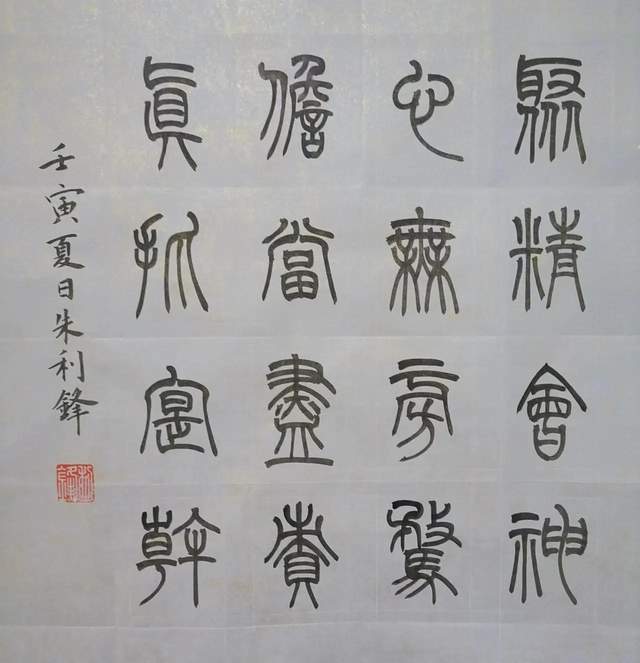 聚精會神
心無旁騖
儋當盡責
眞抓寔幹
壬寅夏日朱利鋒